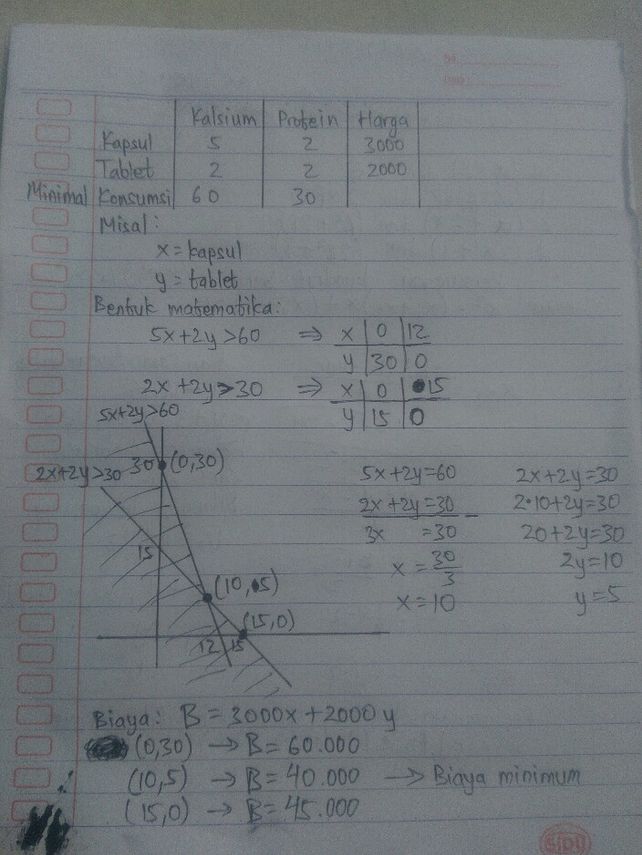 Kalsium Protein Harga
Kapsul 5 2 3000
Tablet 2 2 2000
Minimal Konsumsi 60 30
Misal :
x = kapsul
y = tablet
Bentuk matematika:
5x+2y>60 ⇒ x 0 12
y 30 0
2x+2y>30 ⇒ x 0 15
y 15 0
5x+2y>60
2x+2y>30
30 (0,30)
15
(10,5)
(15,0)
12 15
5x+2y=60
2x+2y=30 −
3x =30
x = 30/3
x=10
2x+2y=30
2•10+2y=30
20+2y=30
2y=10
y=5
Biaya: B = 3000x+2000y
(0,30) → B= 60.000
(10,5) → B= 40.000 → Biaya minimum
(15,0) → B= 45.000